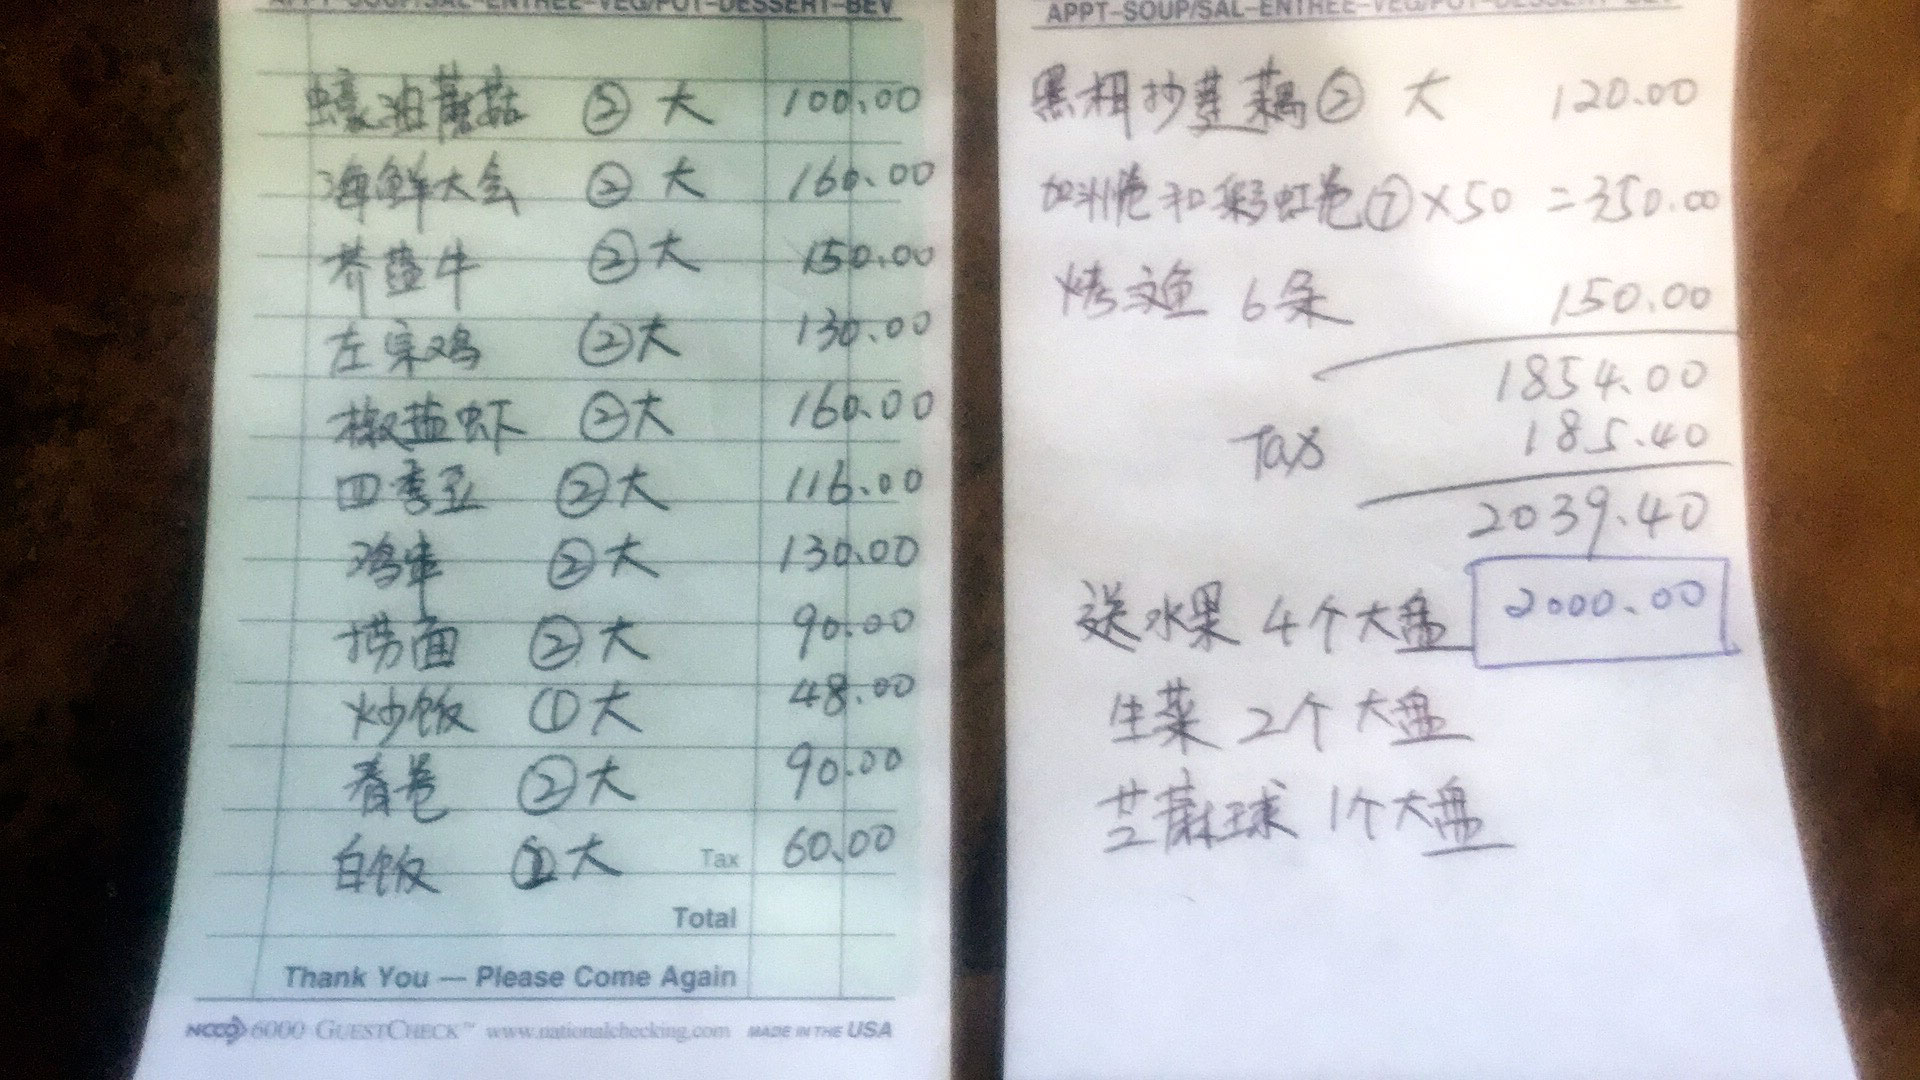 APPT-SOUP/SAL-ENTREE-VEG/POT-DESSERT-BEV
蠔油蘑菇 ② 大 100.00
海鲜大会 ② 大 160.00
芥蓝牛 ② 大 150.00
左宗鸡 ② 大 130.00
椒盐虾 ② 大 160.00
四季豆 ② 大 116.00
鸡串 ② 大 130.00
捞面 ② 大 90.00
炒饭 ① 大 48.00
春卷 ② 大 90.00
白饭 大 Tax 60.00
Total
Thank You — Please Come Again
NCCO 6000 GUESTCHECK™ www.nationalchecking.com MADE IN THE USA
APPT-SOUP/SAL-ENTREE-VEG/POT-DESSERT-BEV
黑椒抄莲藕 ② 大 120.00
加洲卷和彩虹卷 ⑦ × 50 = 350.00
烤文鱼 6条 150.00
1854.00
Tax 185.40
2039.40
送水果 4个大盘 2000.00
生菜 2个大盘
芝蔴球 1个大盘